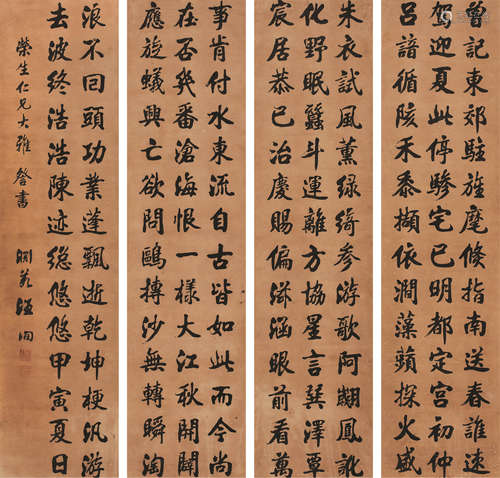 曾記東郊駐旌麾倏指南送春誰速
駕迎夏此停驂宅已明都定宮初仲
呂諳循陔禾黍擷依澗藻蘋探火盛
朱衣試風薰綠綺參游歌阿翽鳳訛
化野眠蠶斗運離方協星言巽澤覃
宸居恭已治慶賜偏滋涵眼前看萬
事肯付水東流自古皆如此而今尚
在否幾番滄海恨一樣大江秋開闢
應旋蟻興亡欲問鷗摶沙無轉瞬淘
浪不回頭功業蓬飄逝乾坤梗汎游
去波終浩浩陳迹總悠悠甲寅夏日
榮生仁兄大雅 詧書 淵若汪洵